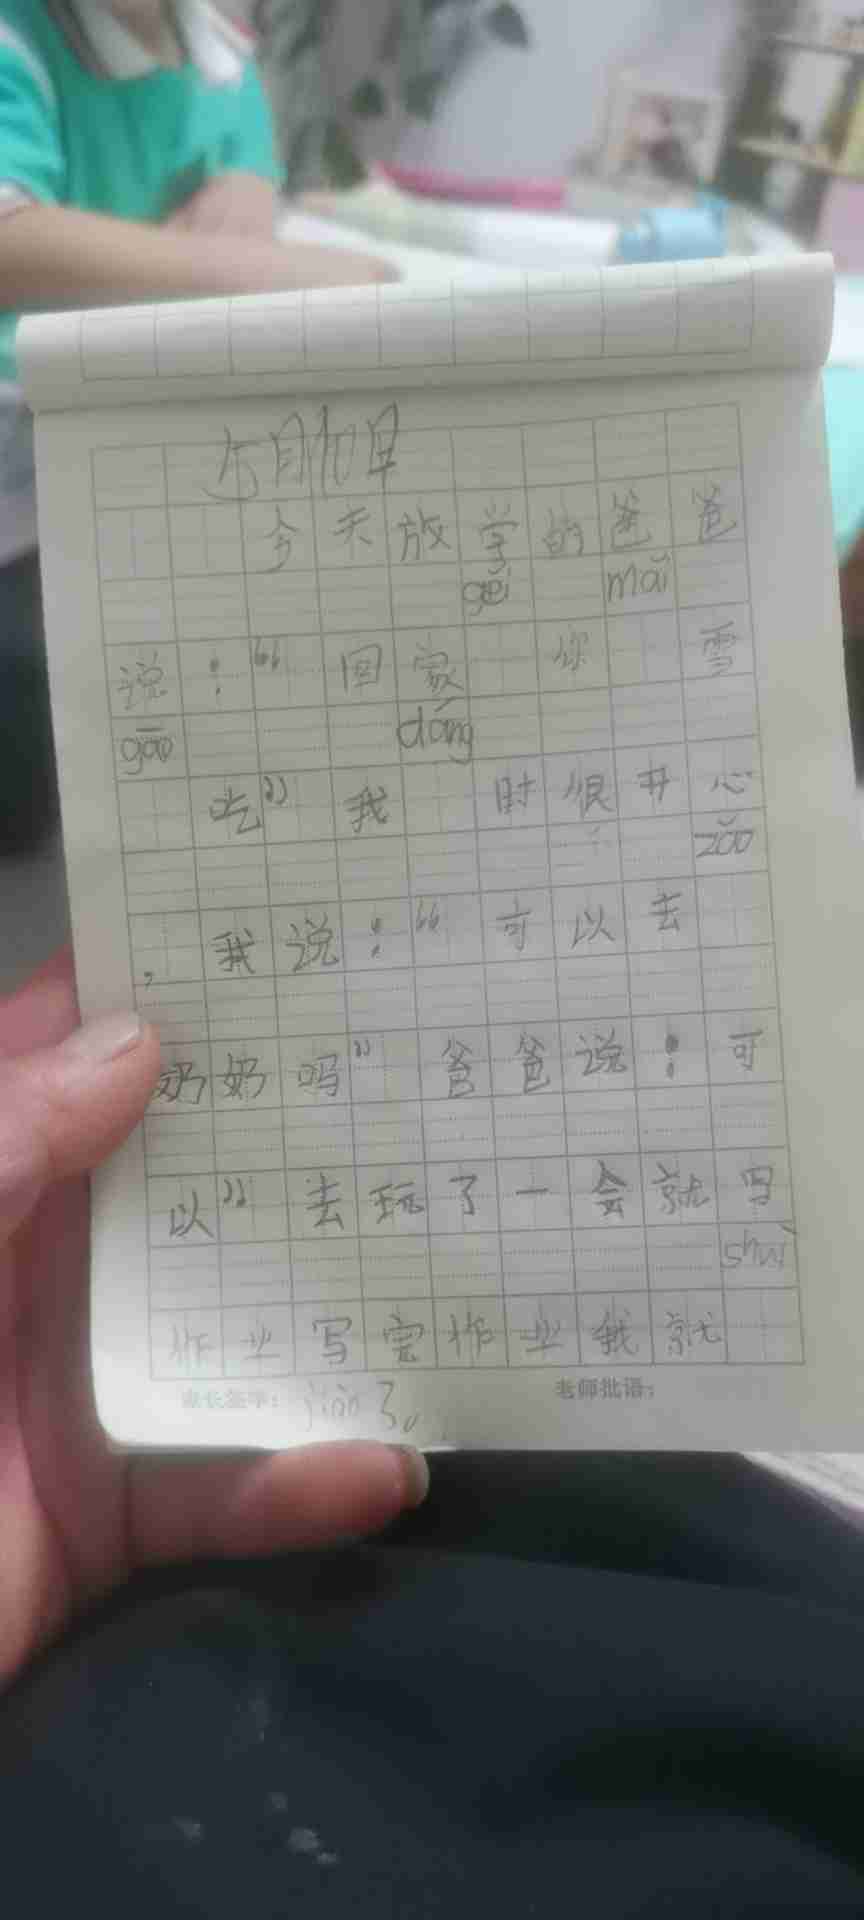 5月10日
今天放学的爸爸
gěi mǎi
说：“回家 你 雪
gāo dāng
吃”我 时很开心
zǎo
，我说：“可以去
奶奶吗”爸爸说：可
以”去玩了一会就写
shuì
作业写完作业我就
家长签字： jiào了。 老师批语：